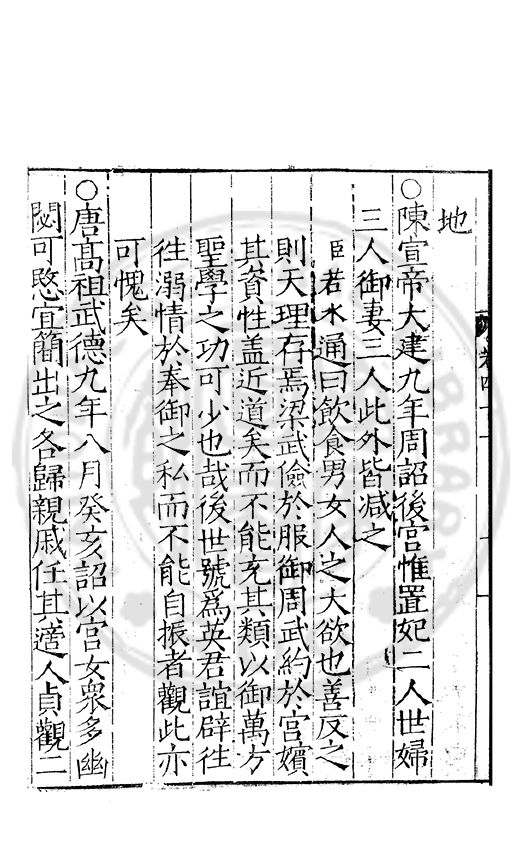 地
○陳宣帝大建九年周詔後宮惟置妃二人世婦
三人御妻三人此外皆减之
臣若水通曰飲食男女人之大欲也善反之
則天理存焉梁武儉於服御周武約於宮嬪
其資性盖近道矣而不能充其類以御萬方
聖學之功可少也哉後世號爲英君誼辟徃
徃溺情於奉御之私而不能自振者觀此亦
可愧矣
○唐髙祖武德九年八月癸亥詔以宮女衆多幽
閟可愍宜簡出之各歸親戚任其適人貞觀二
卷四